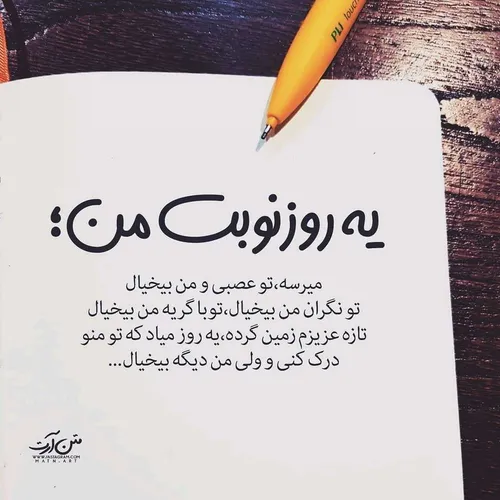 یه روز نوبت من؛
میرسه،تو عصبی و من بیخیال
تو نگران من بیخیال،تو با گریه من بیخیال
تازه عزیزم زمین گرده،یه روز میاد که تو منو
درک کنی و ولی من دیگه بیخیال...
متن آرت
WWW.INSTAGRAM.COM
MATN-ART
PLI touch